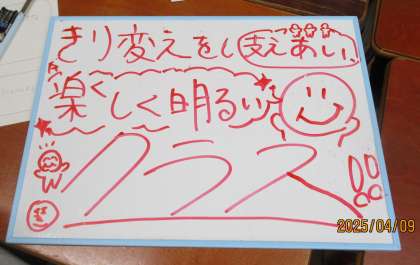 きり変えをし支えあい、
楽しく明るい
クラス
2025/04/09